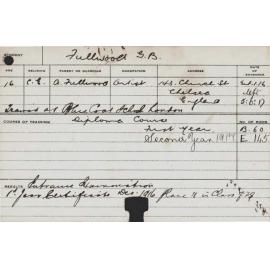 STUDENT Fullwood G.B.
AGE RELIGION PARENT OR GUARDIAN OCCUPATION ADDRESS
16 C.E. A. Fullwood Artist 143 Church St
Chelsea left
England 5.6.17
Learned at Blue Coat School London
COURSE OF TRAINING Diploma Course
First Year B.60
Second Year 1917 E 145
RESULTS Entrance Examination
1st Year Certificate Dec. 1916 Place 11 in Class of 29